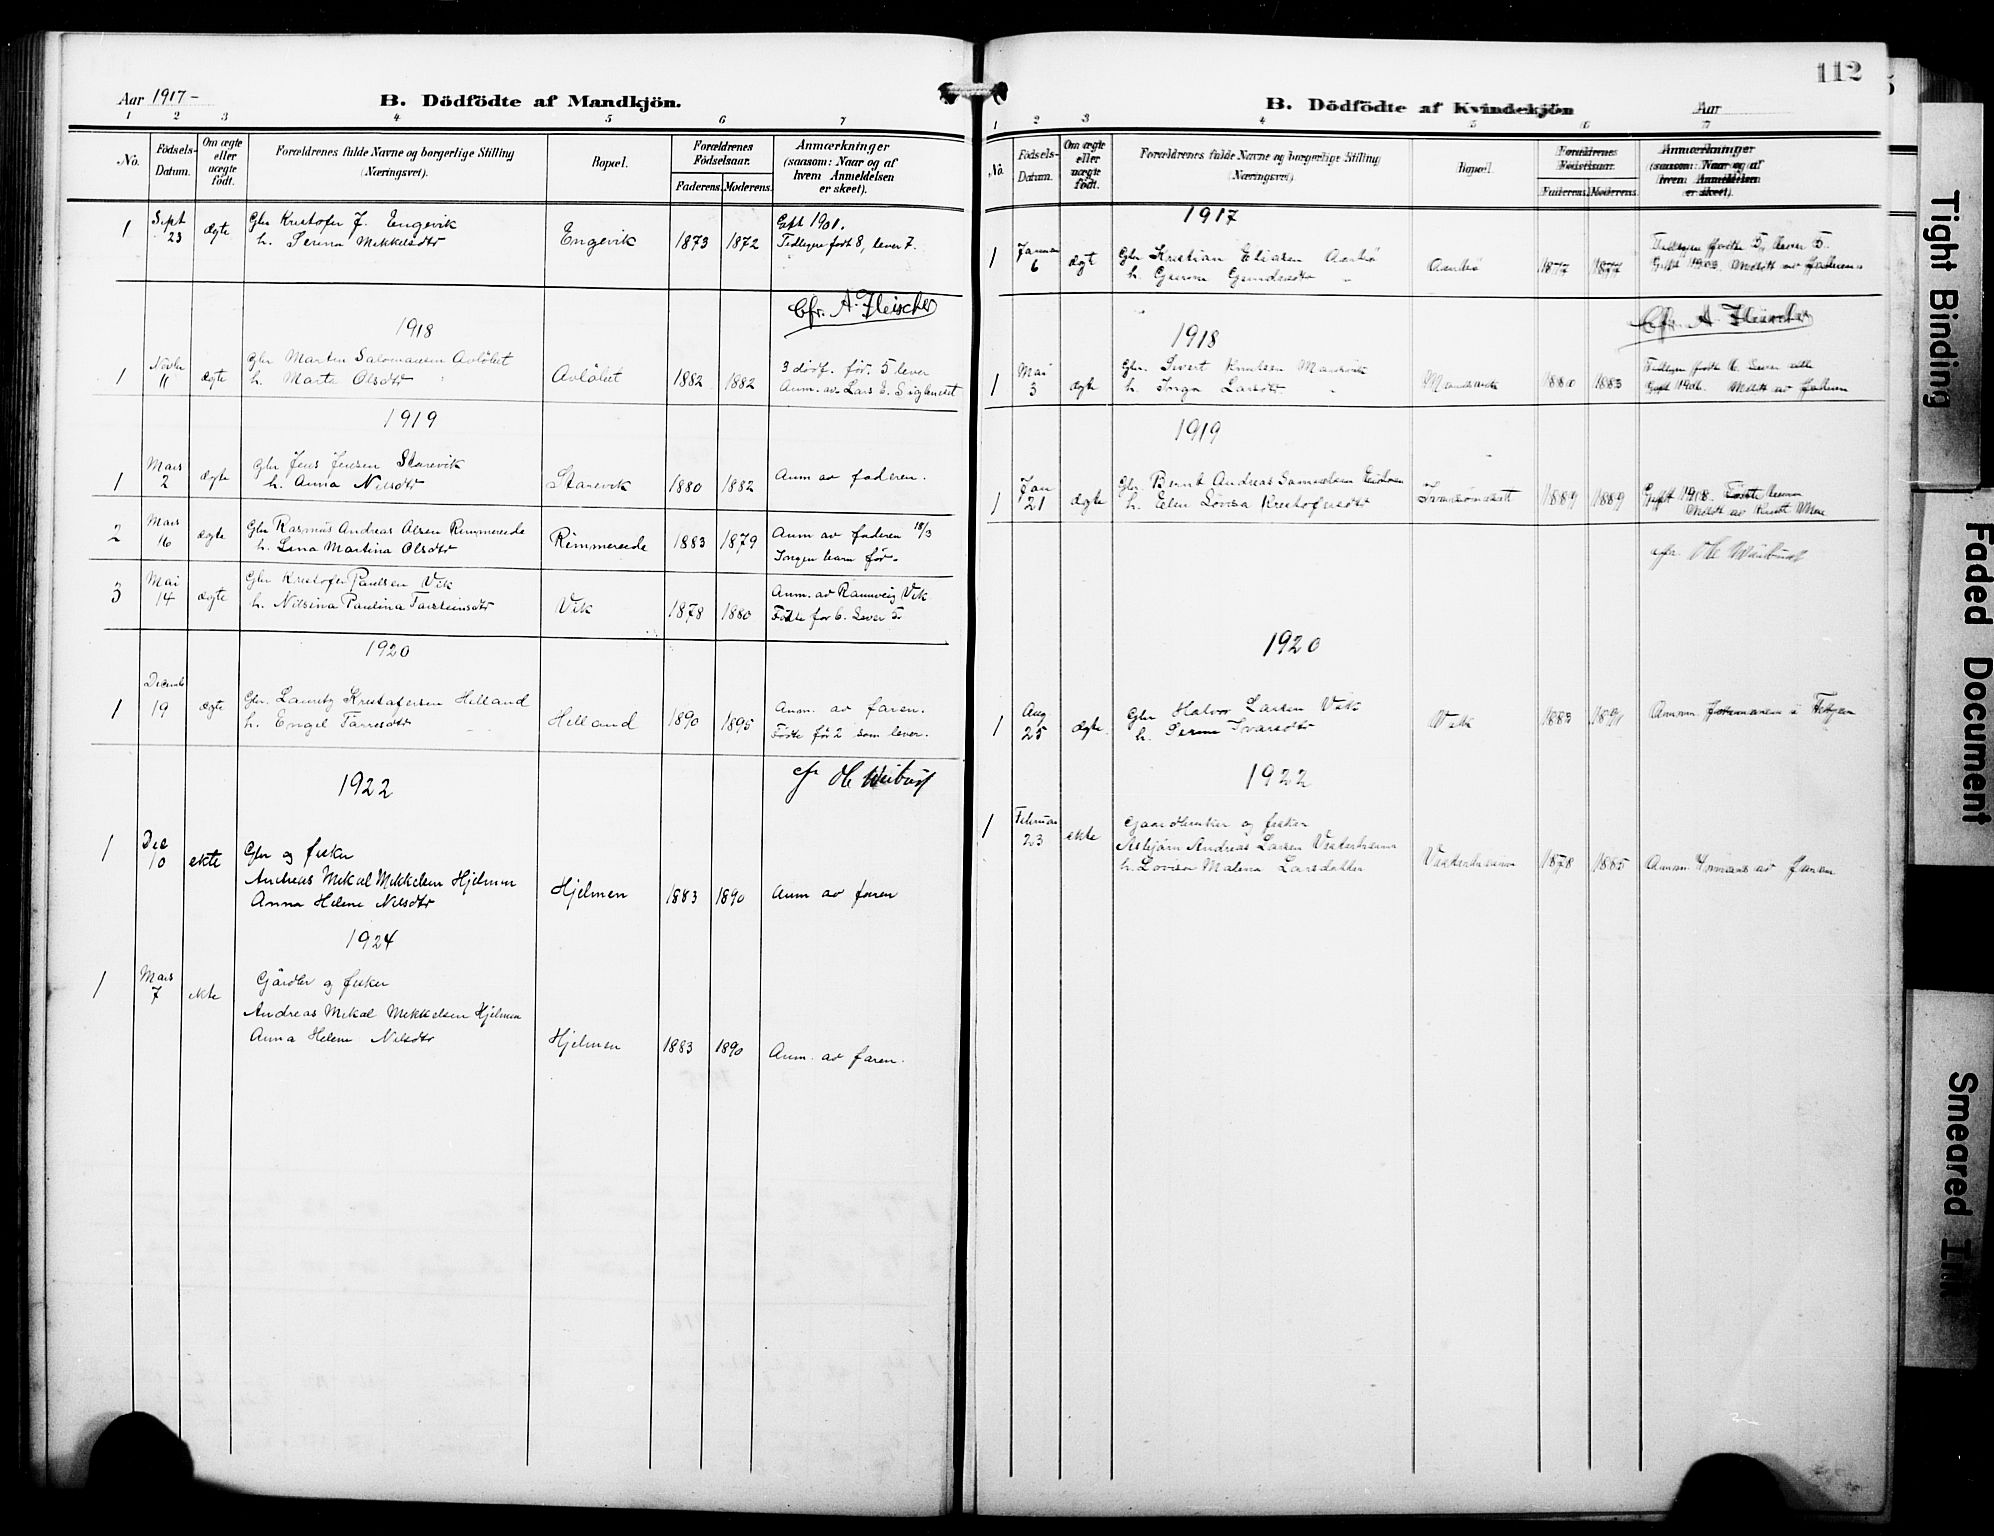 Aar 1917-
B. Dödfödte af Mandkjön.
1 2 3 4 5 6 7
No.
Födsels-Datum.
Om ægte eller uægte födt.
Forældrenes fulde Navne og borgerlige Stilling (Næringsvei).
Bopæl.
Forældrenes Födselsaar.
Faderens. Moderens.
Anmærkninger (saasom: Naar og af hvem Anmeldelsen er skeet).
1 Sept 23 ægte Gbr Kristofer J. Engevik
h. Serina Mekkelsdtr Engevik 1873 1872 Gift 1901.
Tidligere født 8, lever 7.
Cfr. A. Fleischer
1918
1 Novbr 11 ægte Gbr Marten Salomonsen Avløbet
h. Marta Olsdtr Avløbet 1882 1882 3 død. før. 5 lever
Anm. av Lars E.
1919
1 Mars 2 ægte Gbr Jens Jensen Starevik
h. Anna Nilsdtr Starevik 1880 1882 Anm av faderen.
2 Mars 16 ægte Gbr Rasmus Andreas Olsen Rimmereide
h. Lina Martina Olsdtr Rimmereide 1883 1879 Anm av faderen 18/3
Ingen barn før.
3 Mai 14 ægte Gbr Kristofer Paulsen Vik
h. Nilsina Paulina Torsteinsdtr Vik 1878 1880 Anm. av Rannveig Vik
Fødte før 6. Lever 5
1920
1 Decemb 19 ægte Gbr. Lauritz Kristofersen Hilland
h. Engel Tørresdtr Hilland 1890 1895 Anm. av faren.
Fødte før 2 som lever.
cfr Ole
1922
1 Dec 10 ekte Gbr og fisker
Andreas Mikal Mikkelsen Hjelmen
Anna Helene Nilsdtr Hjelmen 1883 1890 Anm av faren
1924
1 Mars 7 ekte Gårdbr og fisker
Andreas Mikal Mikkelsen Hjelmen
Anna Helene Nilsdtr Hjelmen 1883 1890 Anm. av faren.
112
B. Dödfödte af Kvindekjön
Aar
1 2 3 4 5 6 7
No.
Födsels-Datum.
Om ægte eller uægte födt.
Forældrenes fulde Navne og borgerlige Stilling (Næringsvei).
Bopæl.
Forældrenes Födselsaar.
Faderens. Moderens.
Anmærkninger (saasom: Naar og af hvem Anmeldelsen er skeet).
1917
1 Januar 6 ægt Gbr Kristian Eliasen
h. 1877 1877 Tidligere fødte 5, lever 5.
av faderen
Cfr. A. Fleischer
1918
1 Mai 3 ægte Gbr. Sivert Knutsen
h. Inga Larsdtr 1880 1883 Tidligere fødte 6. Lever alle
Gift 1906. av faderen
1919
1 Jan 21 ægte Gbr Bernt Andreas Samuelsen
h. Elen Lovisa Kristofersdtr 1889 1889 Gift 1918.
cfr. Ole
1920
1 Aug 25 ægte. Gbr Halvor Larsen Vik
h. Serine Ivarsdtr Vik 1883
1922
1 Februar 23 ekte Gaardbruker og fisker
Asbjørn Andreas Larsen
h. Lovise Malena Larsdatter 1878 1885 av faren
Tight Binding
Faded Document
Smeared Ink